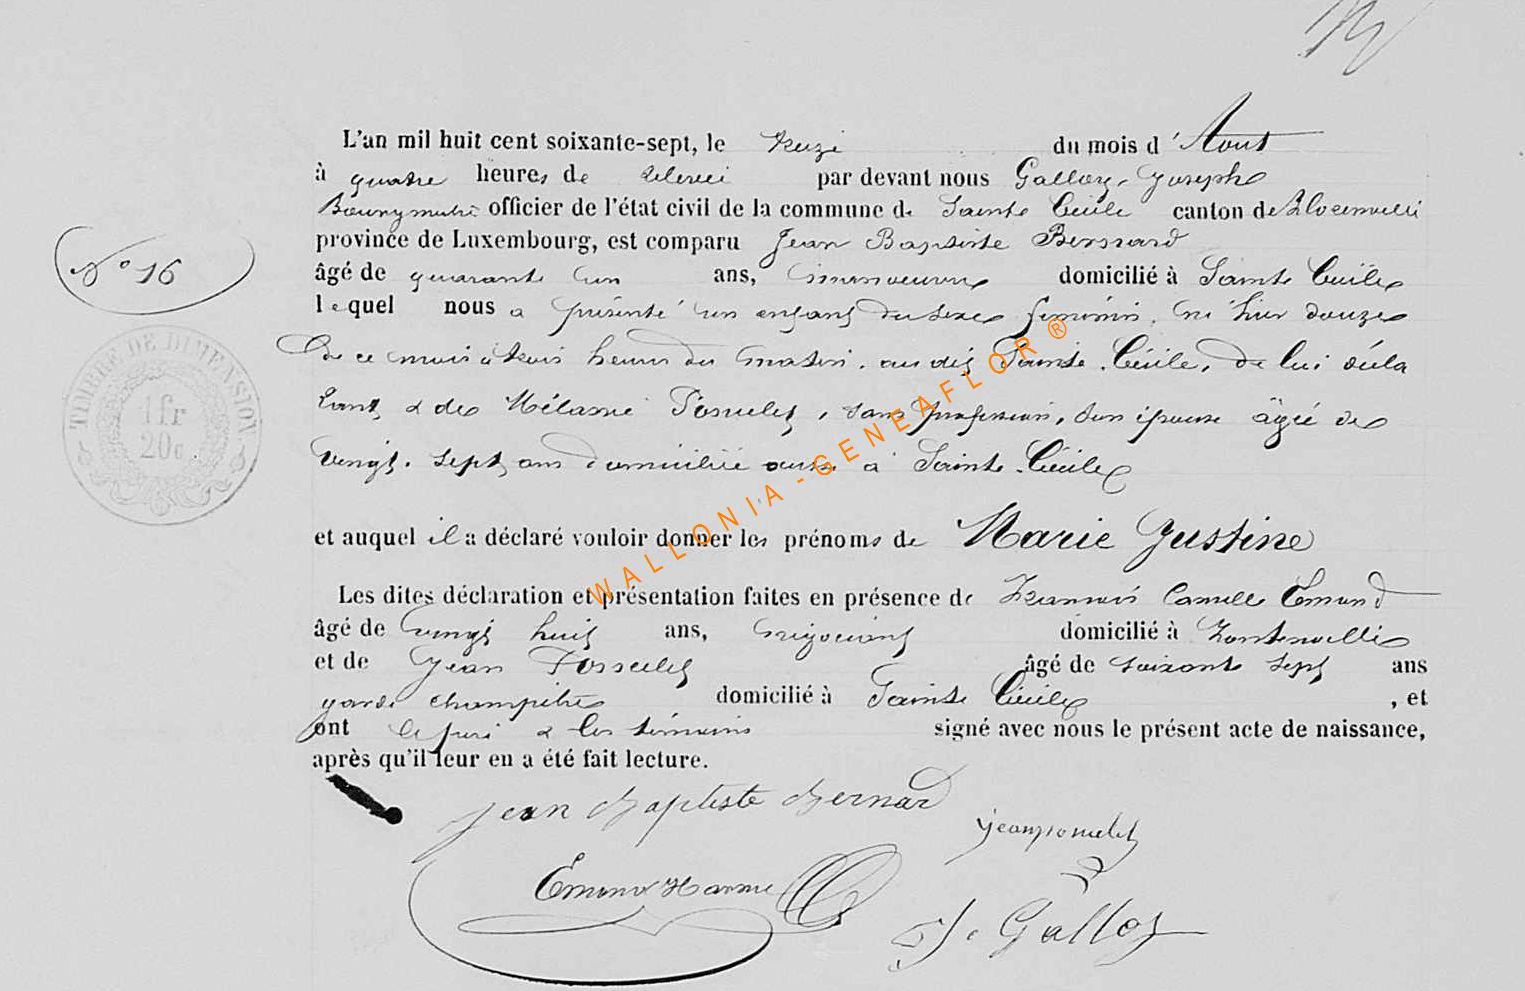 L'an mil huit cent soixante-sept, le treize du mois d'Aout
à quatre heures de relevée par devant nous Galloy, Joseph
Bourgmestre officier de l'état civil de la commune de Sainte Cécile canton de Florenville
province de Luxembourg, est comparu Jean Baptiste Bernard
N° 16
âgé de quarante un ans, manoeuvre domicilié à Sainte Cécile
lequel nous a présenté un enfant du sexe féminin, né hier douze
de ce mois à trois heures du matin, au dit Sainte Cécile, de lui décla
rant, & de Mélanie, sans profession, son épouse âgée de
vingt-sept ans domiciliée aussi à Sainte-Cécile
TIMBRE DE DIMENSION
1 fr
20c.
et auquel il a déclaré vouloir donner les prénoms de Marie Justine
Les dites déclaration et présentation faites en présence de Camille Emond
âgé de vingt huit ans, négociant domicilié à
et de Jean âgé de soixante sept ans
garde champêtre domicilié à Sainte Cécile, et
ont le père & les témoins signé avec nous le présent acte de naissance,
après qu'il leur en a été fait lecture.
Jean Baptiste Bernard
Emond
J. Galloy
WALLONIA-GENEAFLOR®